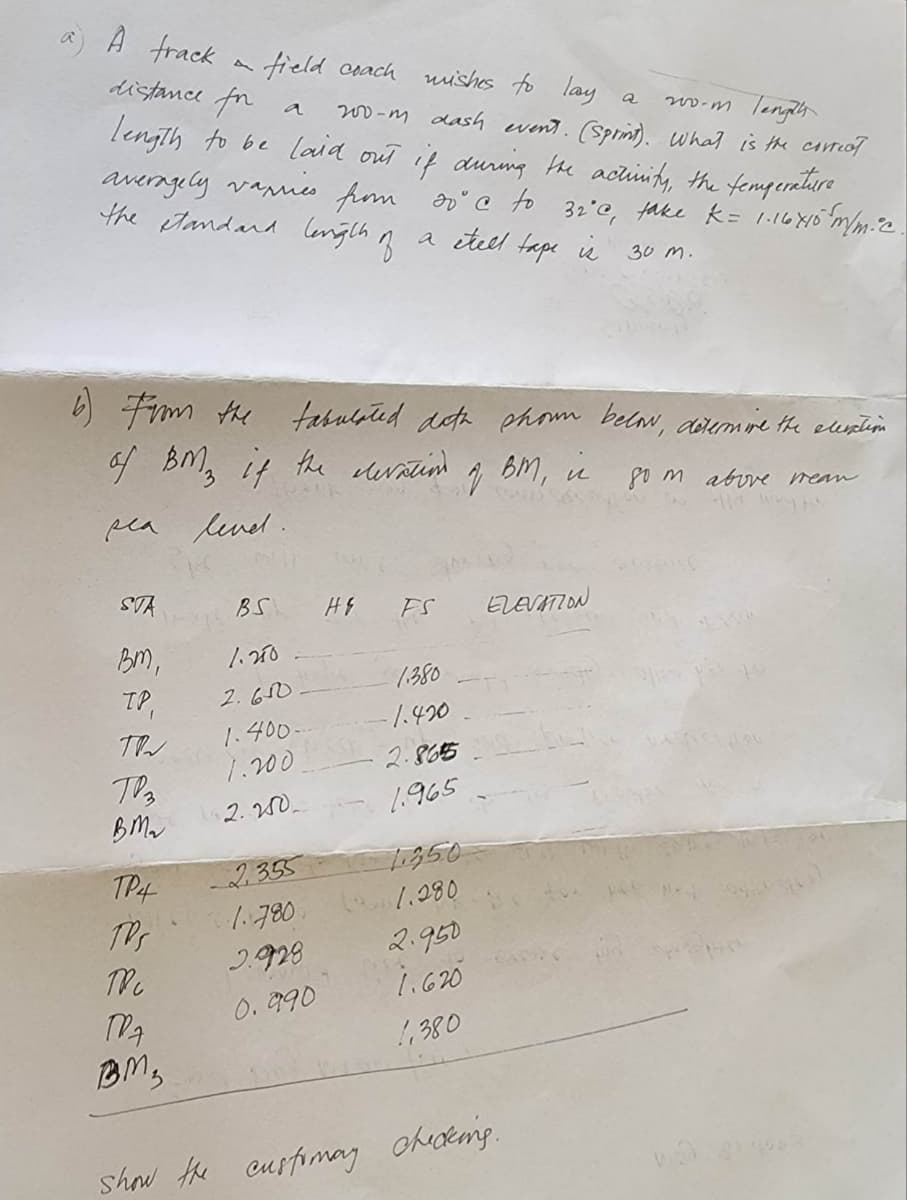 a) A track & field coach wishes to lay a 200-m length
distance for a 200-m dash event. (Sprint). What is the correct
length to be laid out if during the activity, the temperature
averagely varries from 20°C to 32°C, take K = 1.16x10⁻⁵m/m-°C.
the standard length of a steel tape is 30 m.
b) From the tabulated data shown below, determine the elevation
of BM3 if the elevation of BM1 is 80 m above mean
sea level.
STA BS HI FS ELEVATION
BM1 1.250
TP1 2.650 1.380
TP2 1.400 1.420
TP3 1.200 2.865
BM2 2.250 1.965
TP4 2.355 1.350
TP5 1.780 1.280
TP6 2.928 2.950
TP7 0.990 1.620
BM3 1.380
Show the customary checking.